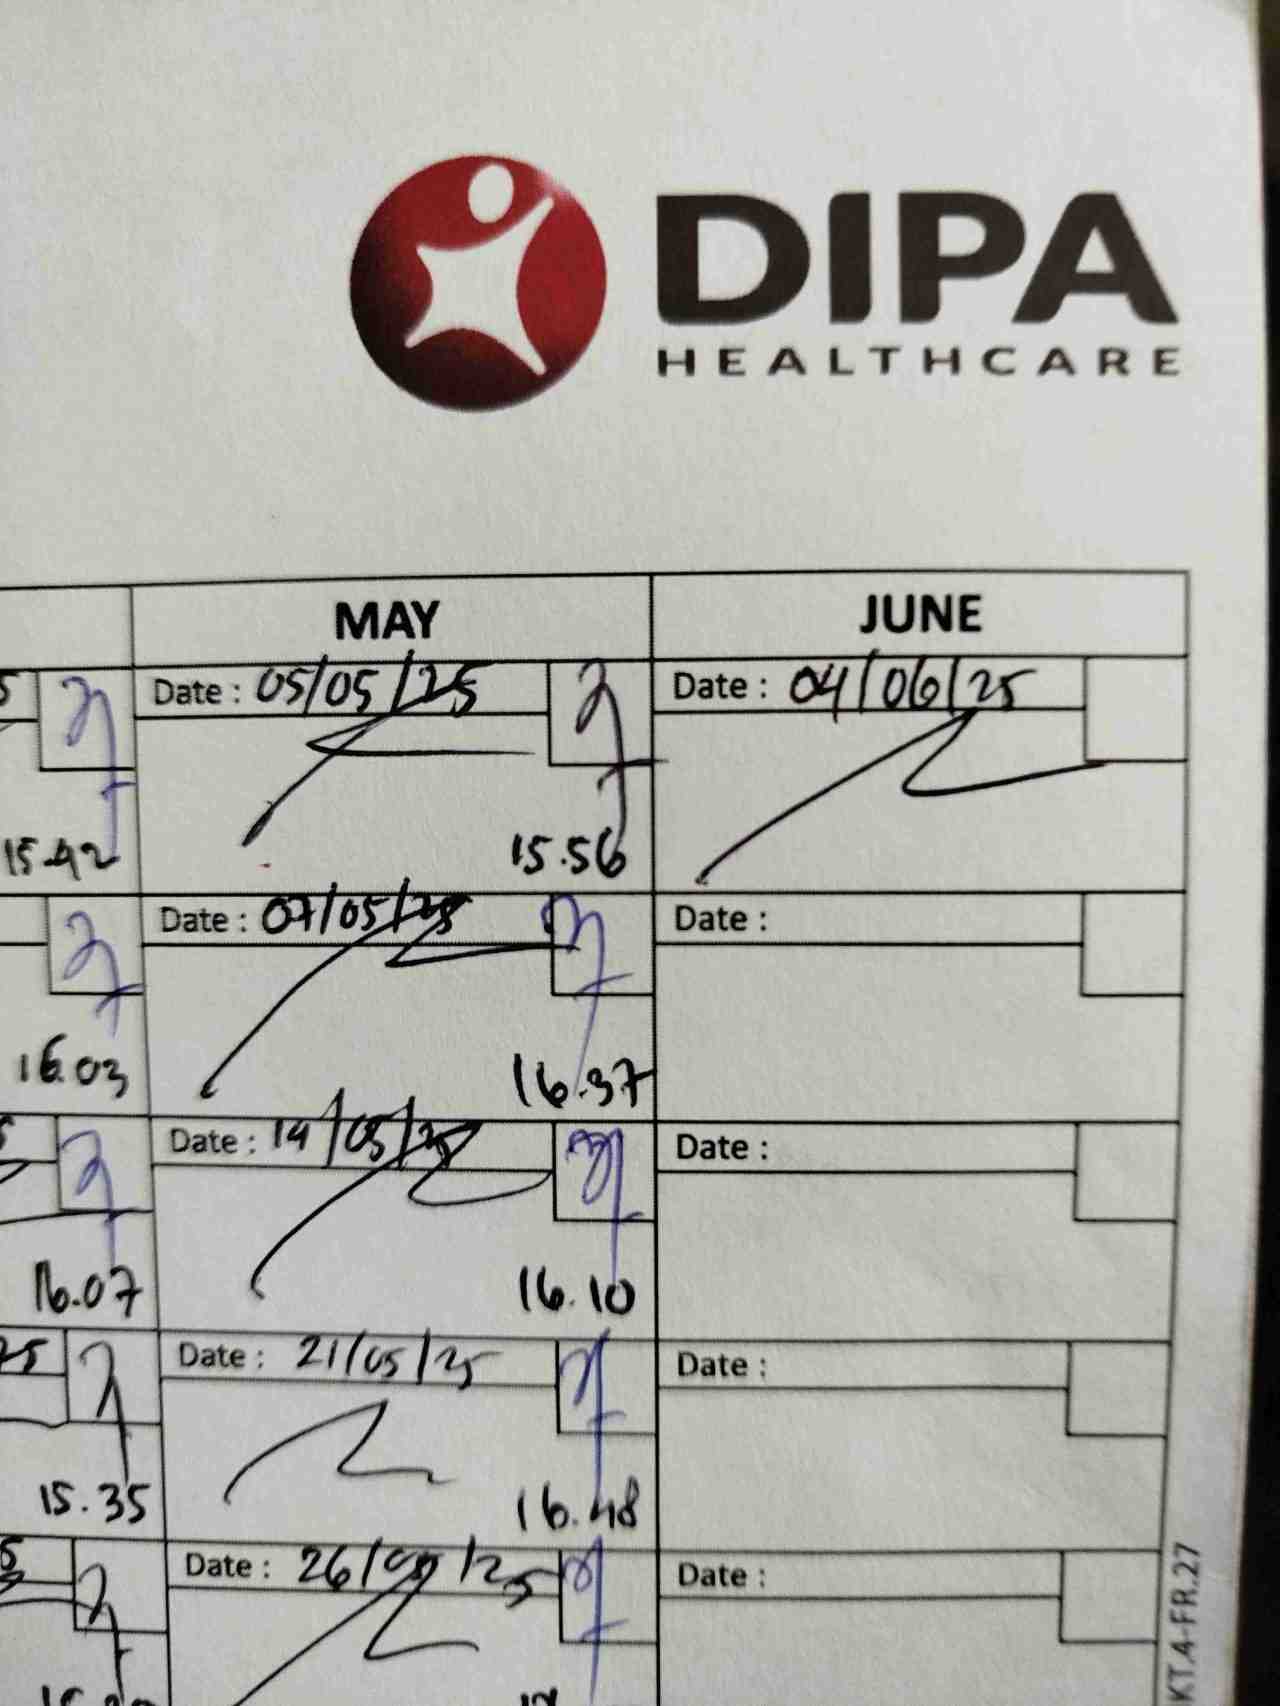 DIPA
HEALTHCARE
MAY JUNE
Date : 05/05/25 Date : 04/06/25
15.42 15.56
Date : 07/05/25 Date :
16.03 16.37
Date : 14/05/25 Date :
16.07 16.10
Date : 21/05/25 Date :
15.35 16.48
Date : 26/05/25 Date :
KT.4-FR.27